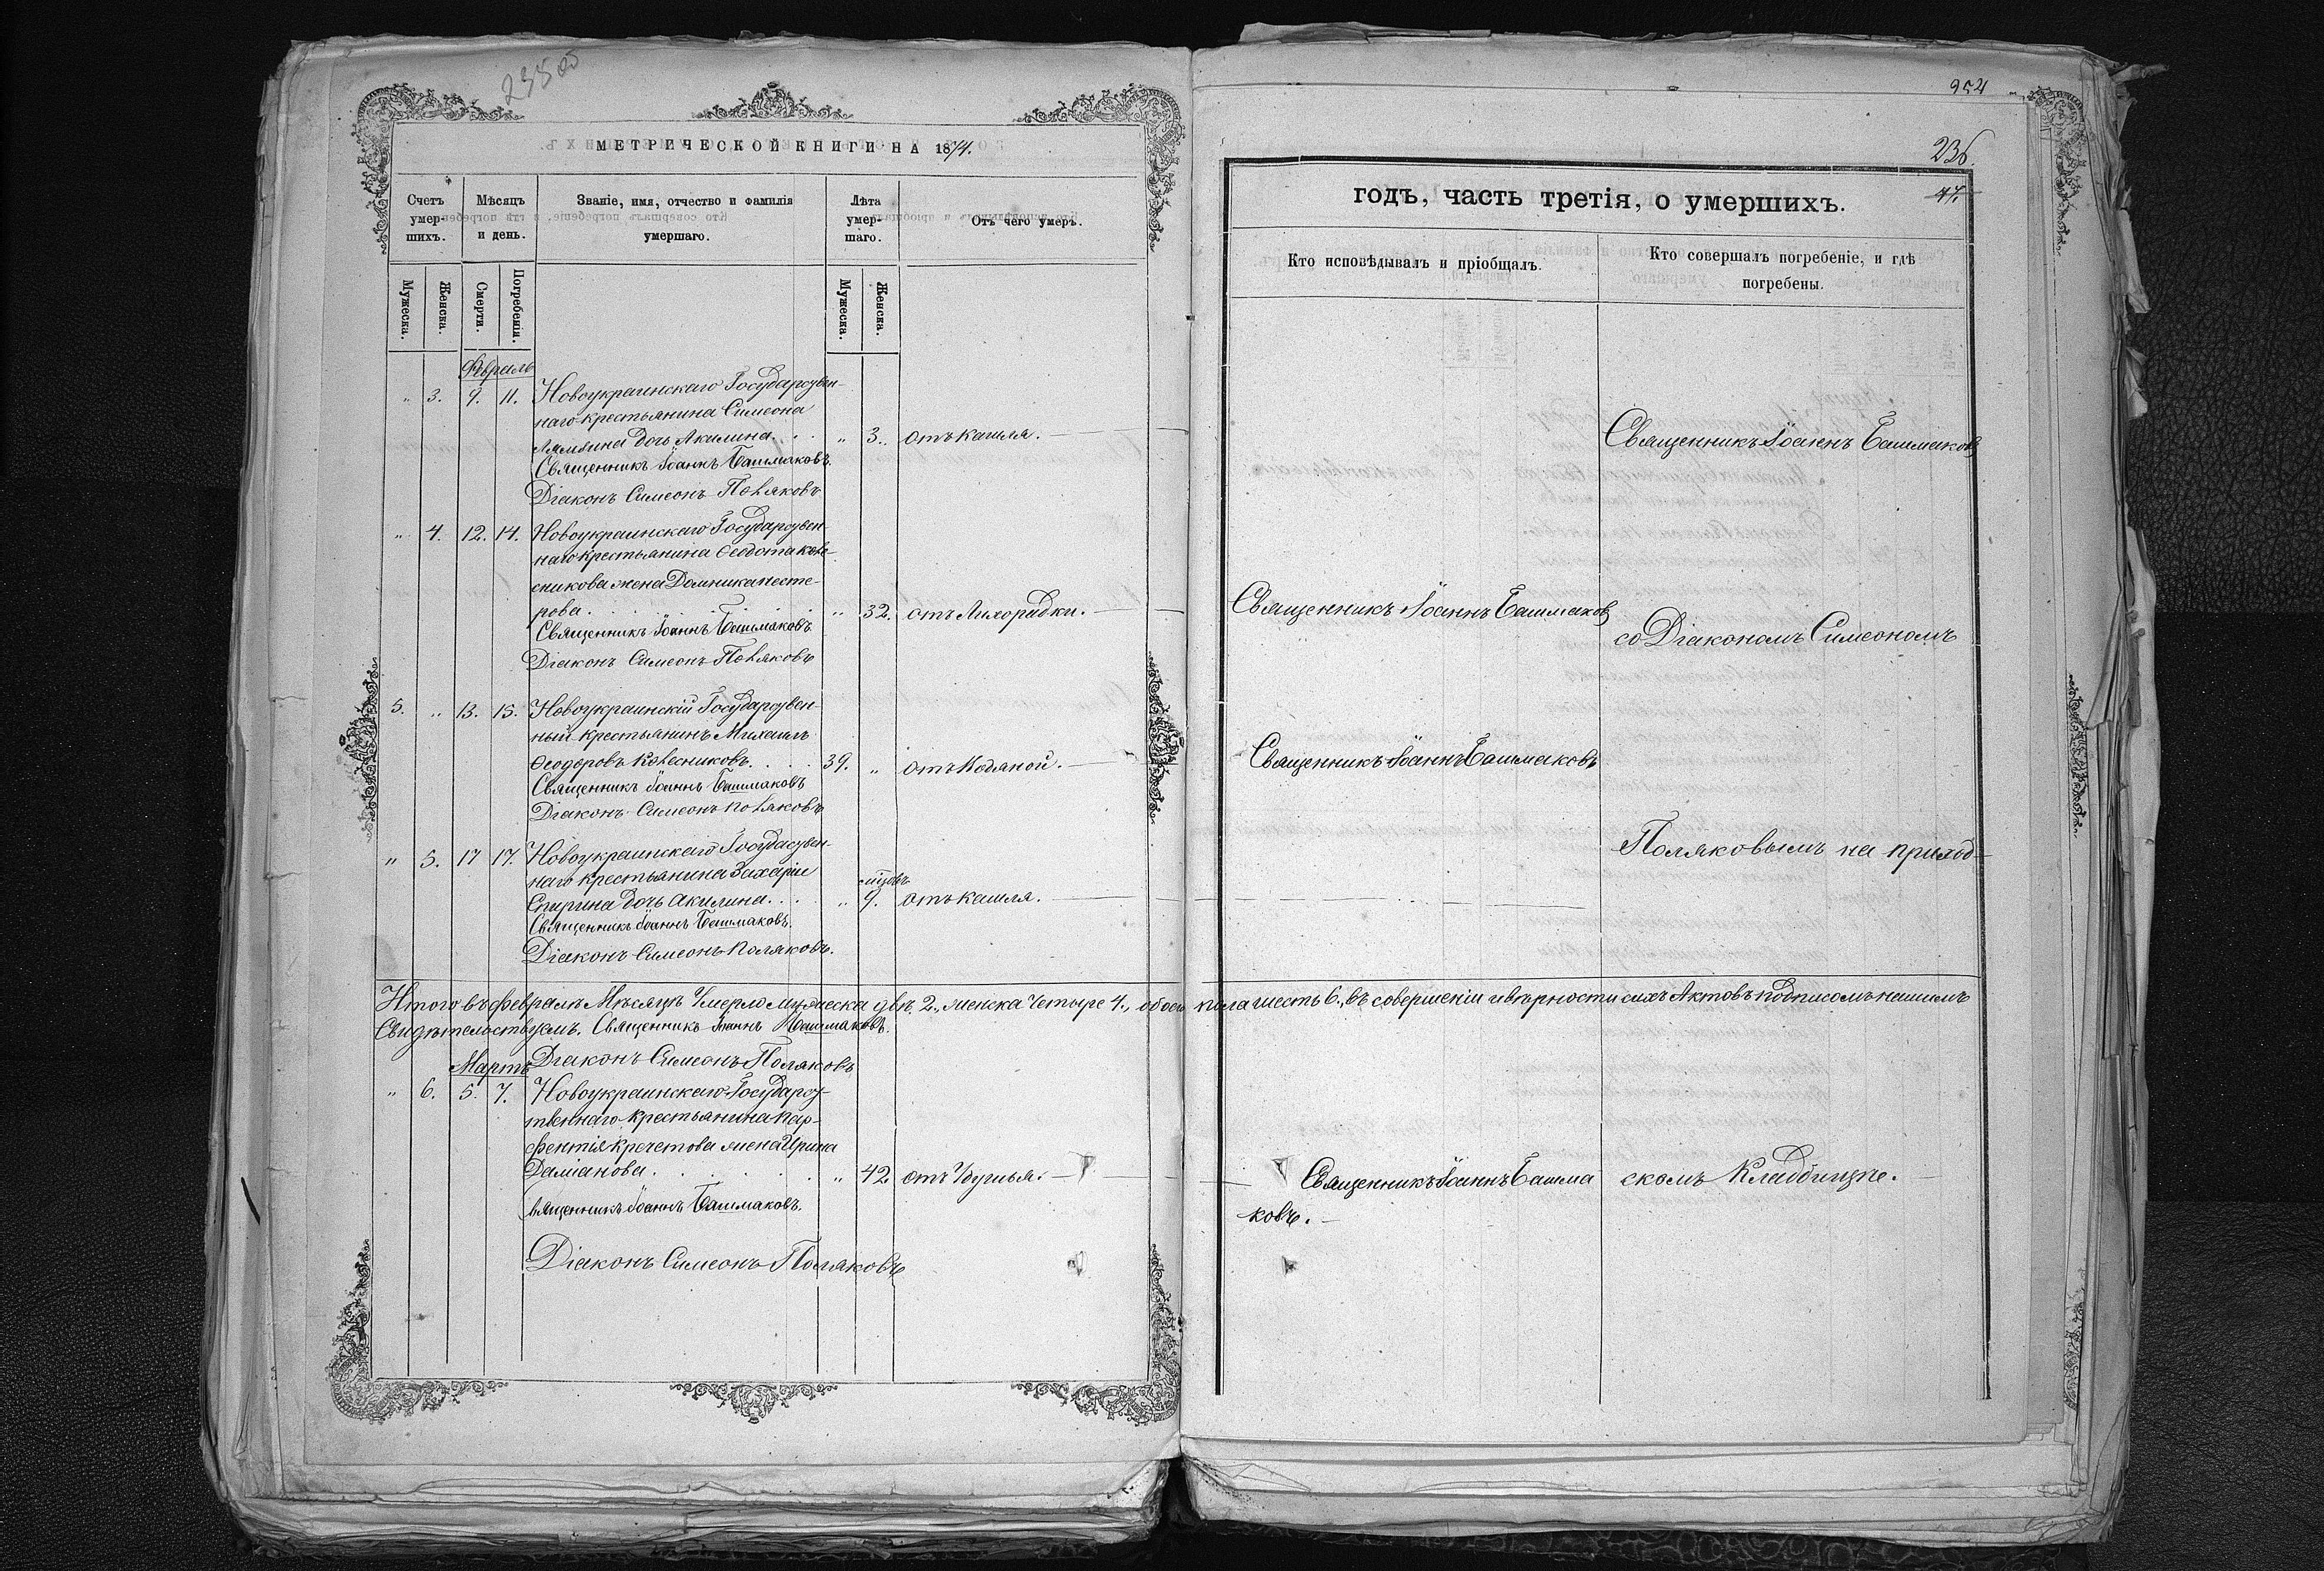 235 об
МЕТРИЧЕСКОЙ КНИГИ НА 1874.
Счетъ умер- шихъ.
Мѣсяцъ и день.
Званіе, имя, отчество и фамилія умершаго.
Лѣта умер- шаго.
Отъ чего умеръ.
Мужеска.
Женска.
Смерти.
Погребенія.
Мужеска.
Женска.
Февраль
" 3. 9. 11. Новоукраинскаго Государствен-
наго крестьянина Симеона
дочь Акилина. . . " 3. отъ кашля.
Священникъ Іоаннъ Башмаковъ.
Діаконъ Симеонъ Поляковъ
" 4. 12. 14. Новоукраинскаго Государствен-
наго крестьянина Ѳеодота Коле-
сникова жена Домника Несте-
рова. . . . . . " 32. отъ Лихорадки.
Священникъ Іоаннъ Башмаковъ
Діаконъ Симеонъ Поляковъ
5. " 13. 15. Новоукраинскій Государствен-
ный крестьянинъ Михаилъ
Ѳеодоровъ Колесниковъ. . . . 39. " отъ Водяной.
Священникъ Іоаннъ Башмаковъ
Діаконъ Симеонъ Поляковъ
" 5. 17 17. Новоукраинскаго Государствен-
наго крестьянина Захаріи
Спирина дочь Акилина. . . " 9. отъ кашля.
Священникъ Іоаннъ Башмаковъ.
Діаконъ Симеонъ Поляковъ.
Итого въ февралѣ Мѣсяцѣ Умерло мужеска двѣ 2., женска четыре 4., обоего пола шесть 6., въ совершеніи и вѣрности сихъ Актовъ подписомъ нашимъ
Свидѣтельствуемъ. Священникъ Іоаннъ Башмаковъ.
Діаконъ Симеонъ Поляковъ
Мартъ
" 6. 5. 7. Новоукраинскаго Государс-
твеннаго крестьянина Пар-
фентія Кречетова жена Ирина
Даміанова. . . . . " 42 отъ Удушья.
Священникъ Іоаннъ Башмаковъ.
Діаконъ Симеонъ Поляковъ
954
236.
47.
годъ, часть третія, о умершихъ.
Кто исповѣдывалъ и пріобщалъ.
Кто совершалъ погребеніе, и гдѣ
погребены.
Священникъ Іоаннъ Башмаковъ
Священникъ Іоаннъ Башмаковъ
со Діакономъ Симеономъ
Священникъ Іоаннъ Башмаковъ
Поляковымъ на приход-
Священникъ Іоаннъ Башма
ковъ.
скомъ Кладбищѣ.